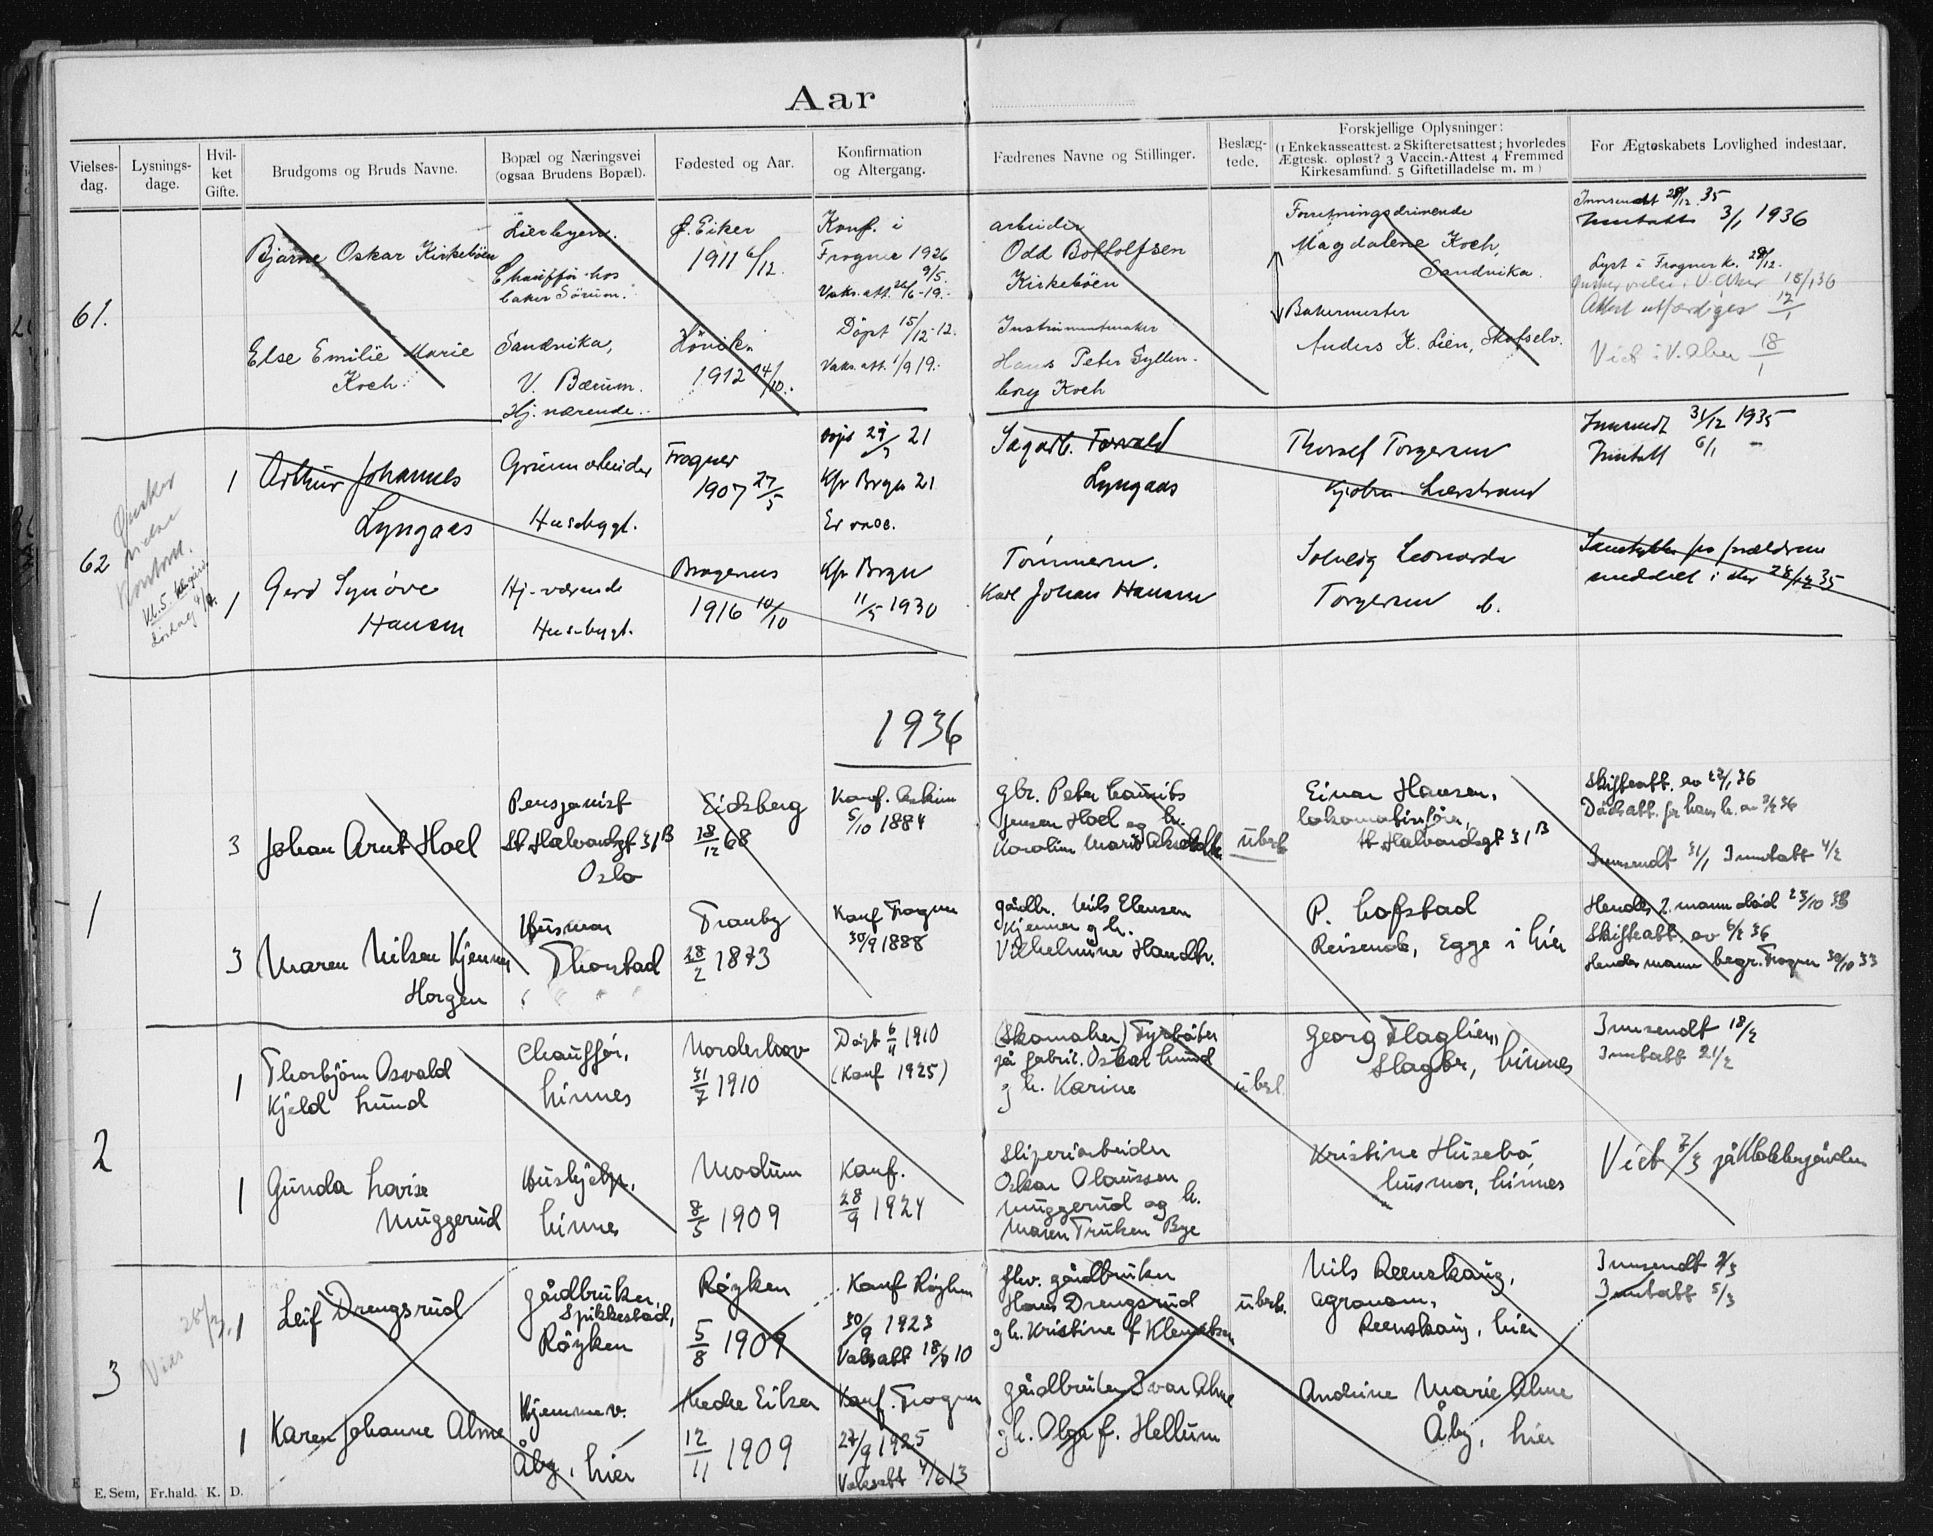 Aar
Vielses-dag.
Lysnings-dage.
Hvil-ket Gifte.
Brudgoms og Bruds Navne.
Bopæl og Næringsvei (ogsaa Brudens Bopæl).
Fødested og Aar.
Konfirmation og Altergang.
Fædrenes Navne og Stillinger.
Beslæg-tede.
Forskjellige Oplysninger: (1 Enkekasseattest. 2 Skifteretsattest; hvorledes Ægtesk. opløst? 3 Vaccin.-Attest 4 Fremmed Kirkesamfund. 5 Giftetilladelse m. m)
For Ægteskabets Lovlighed indestaar.
61.
Bjarne Oskar Kirkeböen
Lierbyen.
Chaufför hos
baker Sörum.
ø. Eiker
1911 6/12.
Konf. i
Frogner 1926
9/5.
Vaks. att. 26/6-19.
arbeider
Odd Bottolfsen
Kirkeböen
Forretningsdrivende
Magdalene Koch,
Sandvika.
Innsendt 28/12 35
Inntatt 3/1 1936
Lyst i Frogner k. 29/12.
Else Emilie Marie
Koch.
Sandvika,
V. Bærum.
Hj. værende.
Hövik.
1912 14/10.
Döpt 15/12-12.
Vaks. att. 1/9 19.
Instrumentmaker
Hans Peter Gyllen-
borg Koch
Bakermester
Anders K. Lien, Skotselv.
Attest utferdiges 17/1
Viet i V. Aker 18/1
62
Ønsker
vielse
kontoret.
1
Arthur Johannes
Lyngaas
Grunnarbeider
Husebygt.
Frogner
1907 27/5
Kfr Brgn 21
Er vacc.
Sagarb. Torvald
Lyngaas
Thorolf Torgersen
Lierstrand
Innsendt 31/12 1935
Inntatt 6/1 -
1
Gerd Synöve
Hansen
Hj-værende
Husebygt.
Bragernes
1916 10/10
Kfr Brgn
11/5 1930
Tömmerm.
Karl Johan Hansen
Solveig Leonarda
Torgersen b.
Samtykke fra foreldrene
meddelt i dag 28/12 35
1936
1
3
Johan Arnt Hoel
Pensjonist
St Halvardsgt 31B
Oslo
Eidsberg
18/12 68
Konf. Askim
5/10 1884
gbr. Peter Laurits
Jensen Hoel og h.
Karoline Marie
ubesl
Einar Hansen,
lokomotivför,
St Halvardsgt 31B
Skifteatt. av 27/1 36
Dödsatt. for hans h. av 3/2 36
Innsendt 31/1 Inntatt 4/2
3
Maren Nilsen Kjenner
Horgen
Husmor
Thorstad
Tranby
28/2 1873
Konf Frogner
30/9 1888
gårdbr. Nils Elensen
Kjenner og h.
Vilhelmine Hansdtr.
P. Lofstad
Reisende, Egge i Lier
Hendes 2. mann död 23/10 33
Skifteatt av 6/2 36
Hendes mann begr. Frogner 30/10 33
2
1
Thorbjörn Osvald
Kjeld Lund
Chaufför,
Linnes
Norderhov
31/7 1910
Döpt 6/11 1910
(Konf 1925)
(Skomaker) Fyrböter
på fabrik. Oskar Lund
og h. Karine
ubesl.
Georg Flaglien,
Slagter, Linnes
Innsendt 18/2
Inntatt 21/2
1
Gunda Lovise
Muggerud
Hushjelp,
Linnes
Modum
8/5 1909
Konf.
28/9 1924
Sliperiarbeider
Oskar Olaussen
Muggerud og h.
Maren Trulsen Bye
Kristine Husebö,
husmor, Linnes
Viet 7/3 på Klokkergården
3
Viet 28/3.
1
Leif Drengsrud
gårdbruker,
Spikkestad,
Röyken
Röyken
5/8 1909
Konf Röyken
30/9 1923
Vaksatt 18/9 10
fhv. gårdbruker
Hans Drengsrud
og h. Kristine f Klemetsen
ubesl.
Nils Reenskaug,
agronom,
Reenskaug, Lier
Innsendt 3/3
Inntatt 5/3
1
Karen Johanne Alme
Hjemmev.
Åby, Lier
Nedre Eiker
12/11 1909
Konf. Frogner
27/9 1925
Vaksatt 4/6 13
gårdbruker Ivar Alme
og h. Olga f. Hellum
Andrine Marie Alme
Åby, Lier
E. Sem, Fr.hald. K. D.